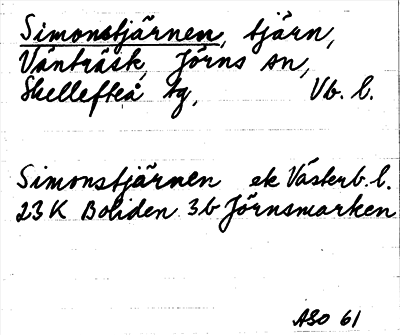 Simonstjärnen, tjärn,
Vänträsk, Jörns sn,
Skellefteå tg, Vb. l.
Simonstjärnen ek Västerb. l.
23K Boliden 3b Jörnsmarken
ASO 61